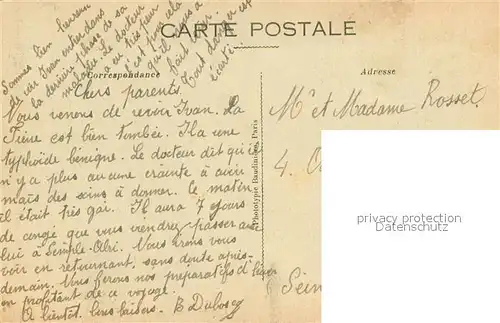 Sommes bien heureux
de voir Ivan entrer dans
la dernière phase de sa
maladie. Le docteur
a eu très peur
c'est pour cela
qu'il nous a
fait venir.
Tout danger est
écarté.
CARTE POSTALE
Correspondance
Adresse
Chers parents.
Nous venons de revoir Ivan. La
fièvre est bien tombée. Il a une
typhoïde bénigne. Le docteur dit qu'il
n'y a plus aucune crainte à avoir
mais des soins à donner. Le matin
il était très gai. Il aura 7 jours
de congé que vous viendrez passer avec
lui à Nous irons vous
voir en retournant, sans doute après-
demain. Nous ferons nos préparatifs d'hiver
en profitant de ce voyage.
A bientôt. Bons baisers. B Dubosq
Phototypie Baudinière, Paris
Mr et Madame Rosset
4.
Sein
privacy protection
Datenschutz